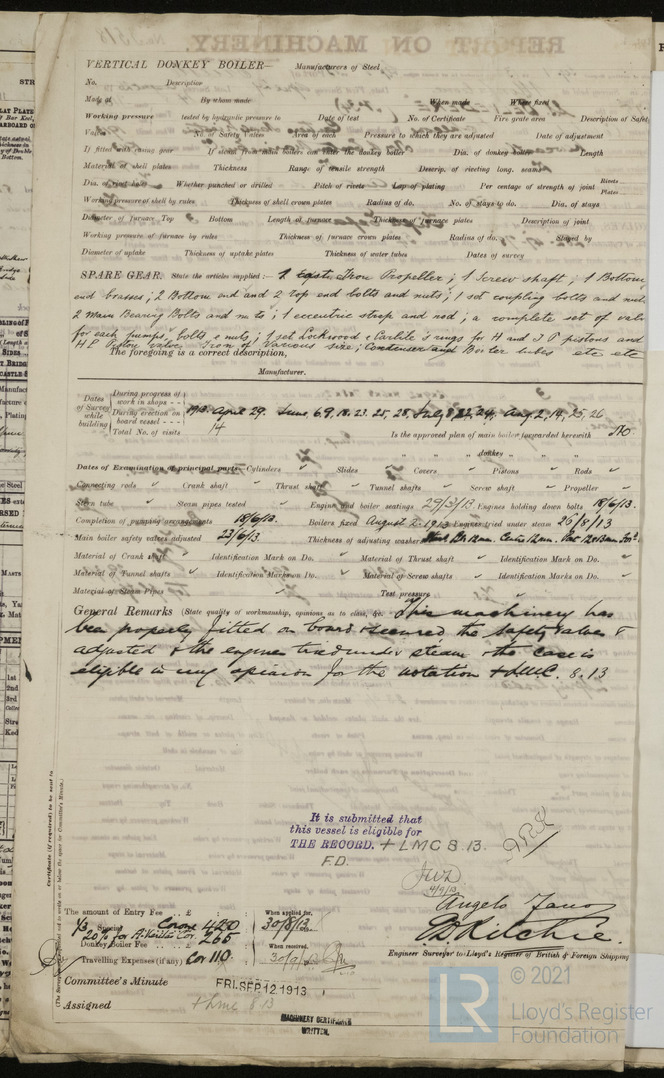 VERTICAL DONKEY BOILER— Manufacturers of Steel
No. Description
Made at By whom made When made Where fixed
Working pressure tested by hydraulic pressure to Date of test No. of Certificate Fire grate area Description of Safety
Valves No. of Safety Valves Area of each Pressure to which they are adjusted Date of adjustment
If fitted with easing gear If steam from main boilers can enter the donkey boiler Dia. of donkey boiler Length
Material of shell plates Thickness Range of tensile strength Descrip. of riveting long. seams
Dia. of rivet holes Whether punched or drilled Pitch of rivets Lap of plating Per centage of strength of joint Rivets Plates
Working pressure of shell by rules Thickness of shell crown plates Radius of do. No. of stays to do. Dia. of stays
Diameter of furnace Top Bottom Length of furnace Thickness of furnace plates Description of joint
Working pressure of furnace by rules Thickness of furnace crown plates Radius of do. Stayed by
Diameter of uptake Thickness of uptake plates Thickness of water tubes Dates of survey
SPARE GEAR. State the articles supplied:— 1 cast Iron Propeller; 1 Screw shaft; 1 Bottom
end brasses; 2 Bottom end and 2 top end bolts and nuts; 1 set coupling bolts and nuts
2 Main Bearing Bolts and nuts; 1 eccentric strap and rod; a complete set of valves
for each pump, bolts & nuts; 1 set Lockwood & Carlile's rings for H and I P pistons and
H P Piston valve, Iron of various size; Condenser and Boiler tubes etc etc
The foregoing is a correct description,
Manufacturer.
Dates of Survey while building
During progress of work in shops - -
During erection on board vessel - - - 1913. April 29. June 6 9. 18. 23. 25, 28, July 8 22, 24, Aug. 2, 14, 25, 26
Total No. of visits 14 Is the approved plan of main boiler forwarded herewith No
" " " donkey " " "
Dates of Examination of principal parts—Cylinders " Slides " Covers " Pistons " Rods "
Connecting rods " Crank shaft " Thrust shaft " Tunnel shafts " Screw shaft " Propeller "
Stern tube " Steam pipes tested " Engine and boiler seatings 29/5/13 Engines holding down bolts 18/6/13.
Completion of pumping arrangements 18/6/13. Boilers fixed August 2. 1913 Engines tried under steam 26/8/13
Main boiler safety valves adjusted 23/6/13. Thickness of adjusting washers
Material of Crank shaft " Identification Mark on Do. " Material of Thrust shaft " Identification Mark on Do. "
Material of Tunnel shafts " Identification Marks on Do. " Material of Screw shafts " Identification Marks on Do. "
Material of Steam Pipes " Test pressure "
General Remarks (State quality of workmanship, opinions as to class, &c. This machinery has
been properly fitted on board & secured, the safety valves
adjusted & the engines tried under steam & the case is
eligible in my opinion for the notation + LMC. 8.13
Certificate (if required) to be sent to
It is submitted that
this vessel is eligible for
THE RECORD. + LMC 8.13.
F.D.
4/9/13
The amount of Entry Fee .. £ : : When applied for,
1/3 Special Corone 420 30/8/13
Donkey Boiler Fee .. .. £ 265 When received,
Travelling Expenses (if any) Cor 110 30/9/13
Angelo
D. Ritchie.
Engineer Surveyor to Lloyd's Register of British & Foreign Shipping
Committee's Minute FRI. SEP 12 1913
Assigned + Lmc 8 13
MACHINERY CERTIFICATE
WRITTEN.
© 2021
LR
Lloyd's Register
Foundation